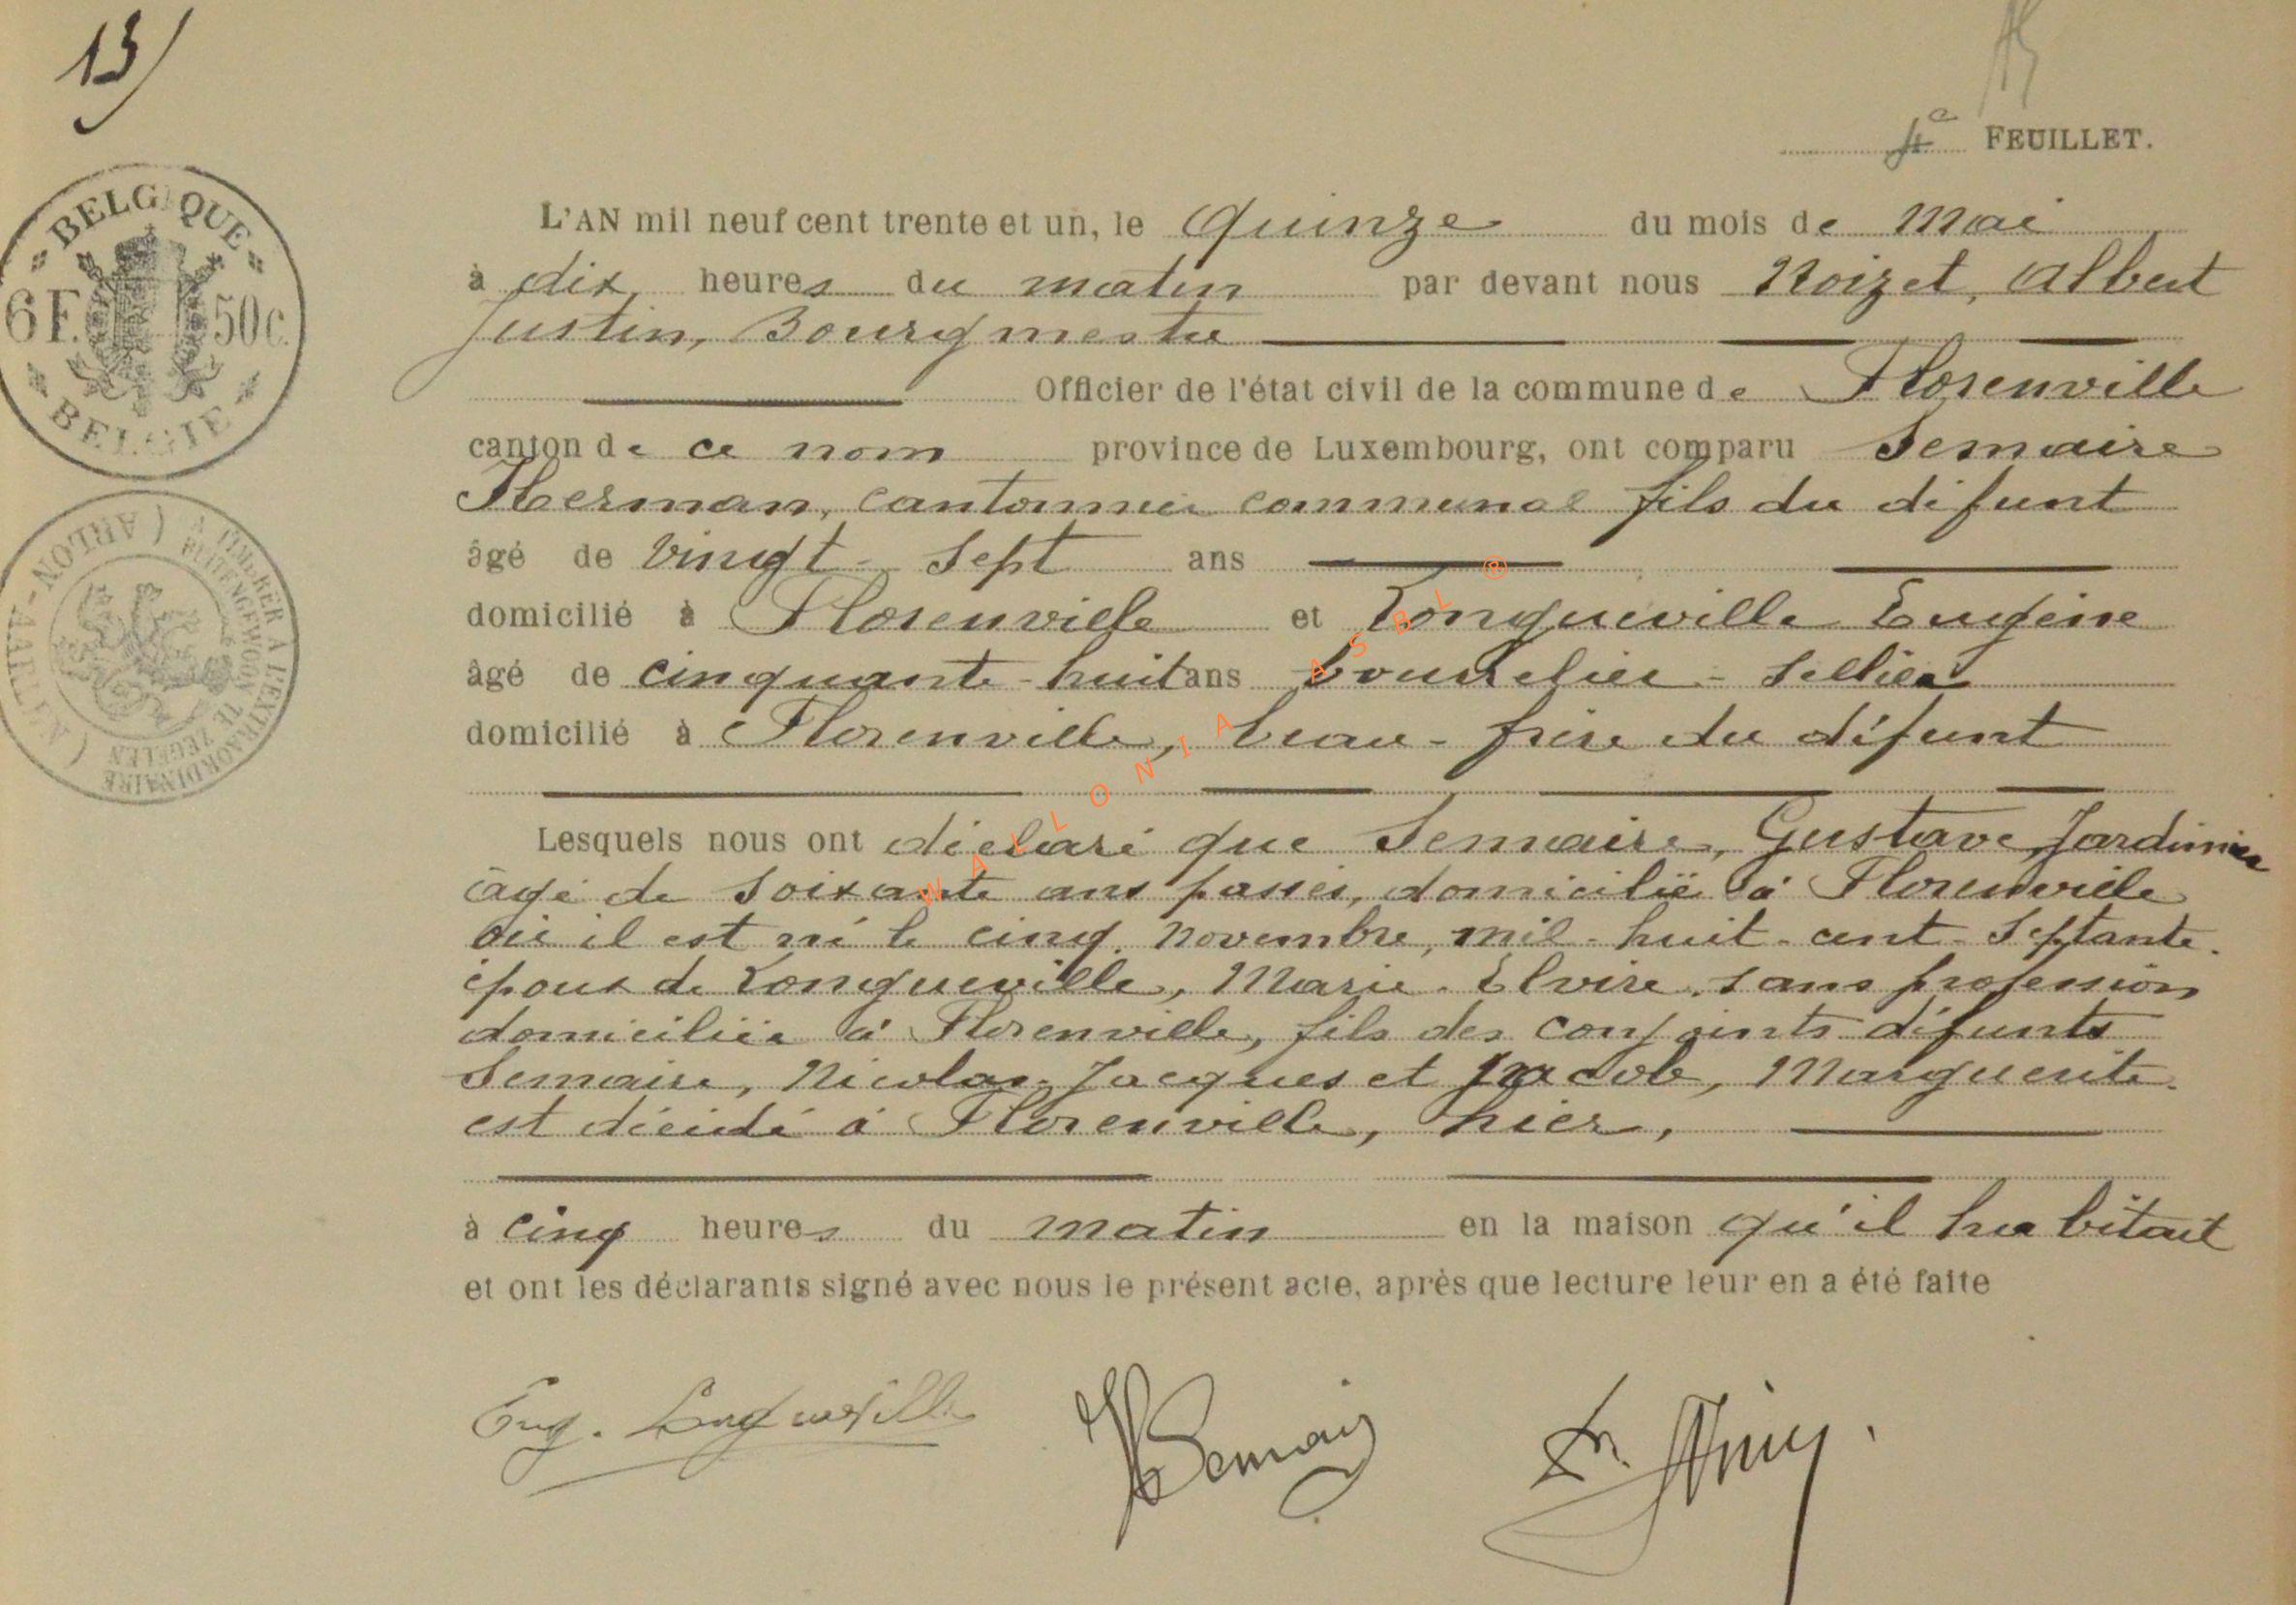 13)
4e FEUILLET.
BELGIQUE
6F. 50c.
BELGIE
L'AN mil neuf cent trente et un, le quinze du mois de Mai
à dix heures du matin par devant nous Noizet, Albert
Justin, Bourgmestre
Officier de l'état civil de la commune de Florenville
canton de ce nom province de Luxembourg, ont comparu Semaire
Herman, cantonnier communal fils du défunt
âgé de vingt-sept ans
domicilié à Florenville et Longueville Eugène
âgé de cinquante-huit ans bourrelier-sellier
domicilié à Florenville, beau-frère du défunt
Lesquels nous ont déclaré que Semaire, Gustave, Jardinier
âgé de soixante ans passés, domicilié à Florenville
où il est né le cinq novembre, mil-huit-cent-septante.
époux de Longueville, Marie-Elvire, sans profession
domiciliée à Florenville, fils des conjoints défunts
Semaire, Nicolas-Jacques et Jacob, Marguerite.
est décédé à Florenville, hier,
à cinq heures du matin en la maison qu'il habitait
et ont les déclarants signé avec nous le présent acte, après que lecture leur en a été faite
Eug. Longueville
H Semaire
WALLONIA ASBL ®